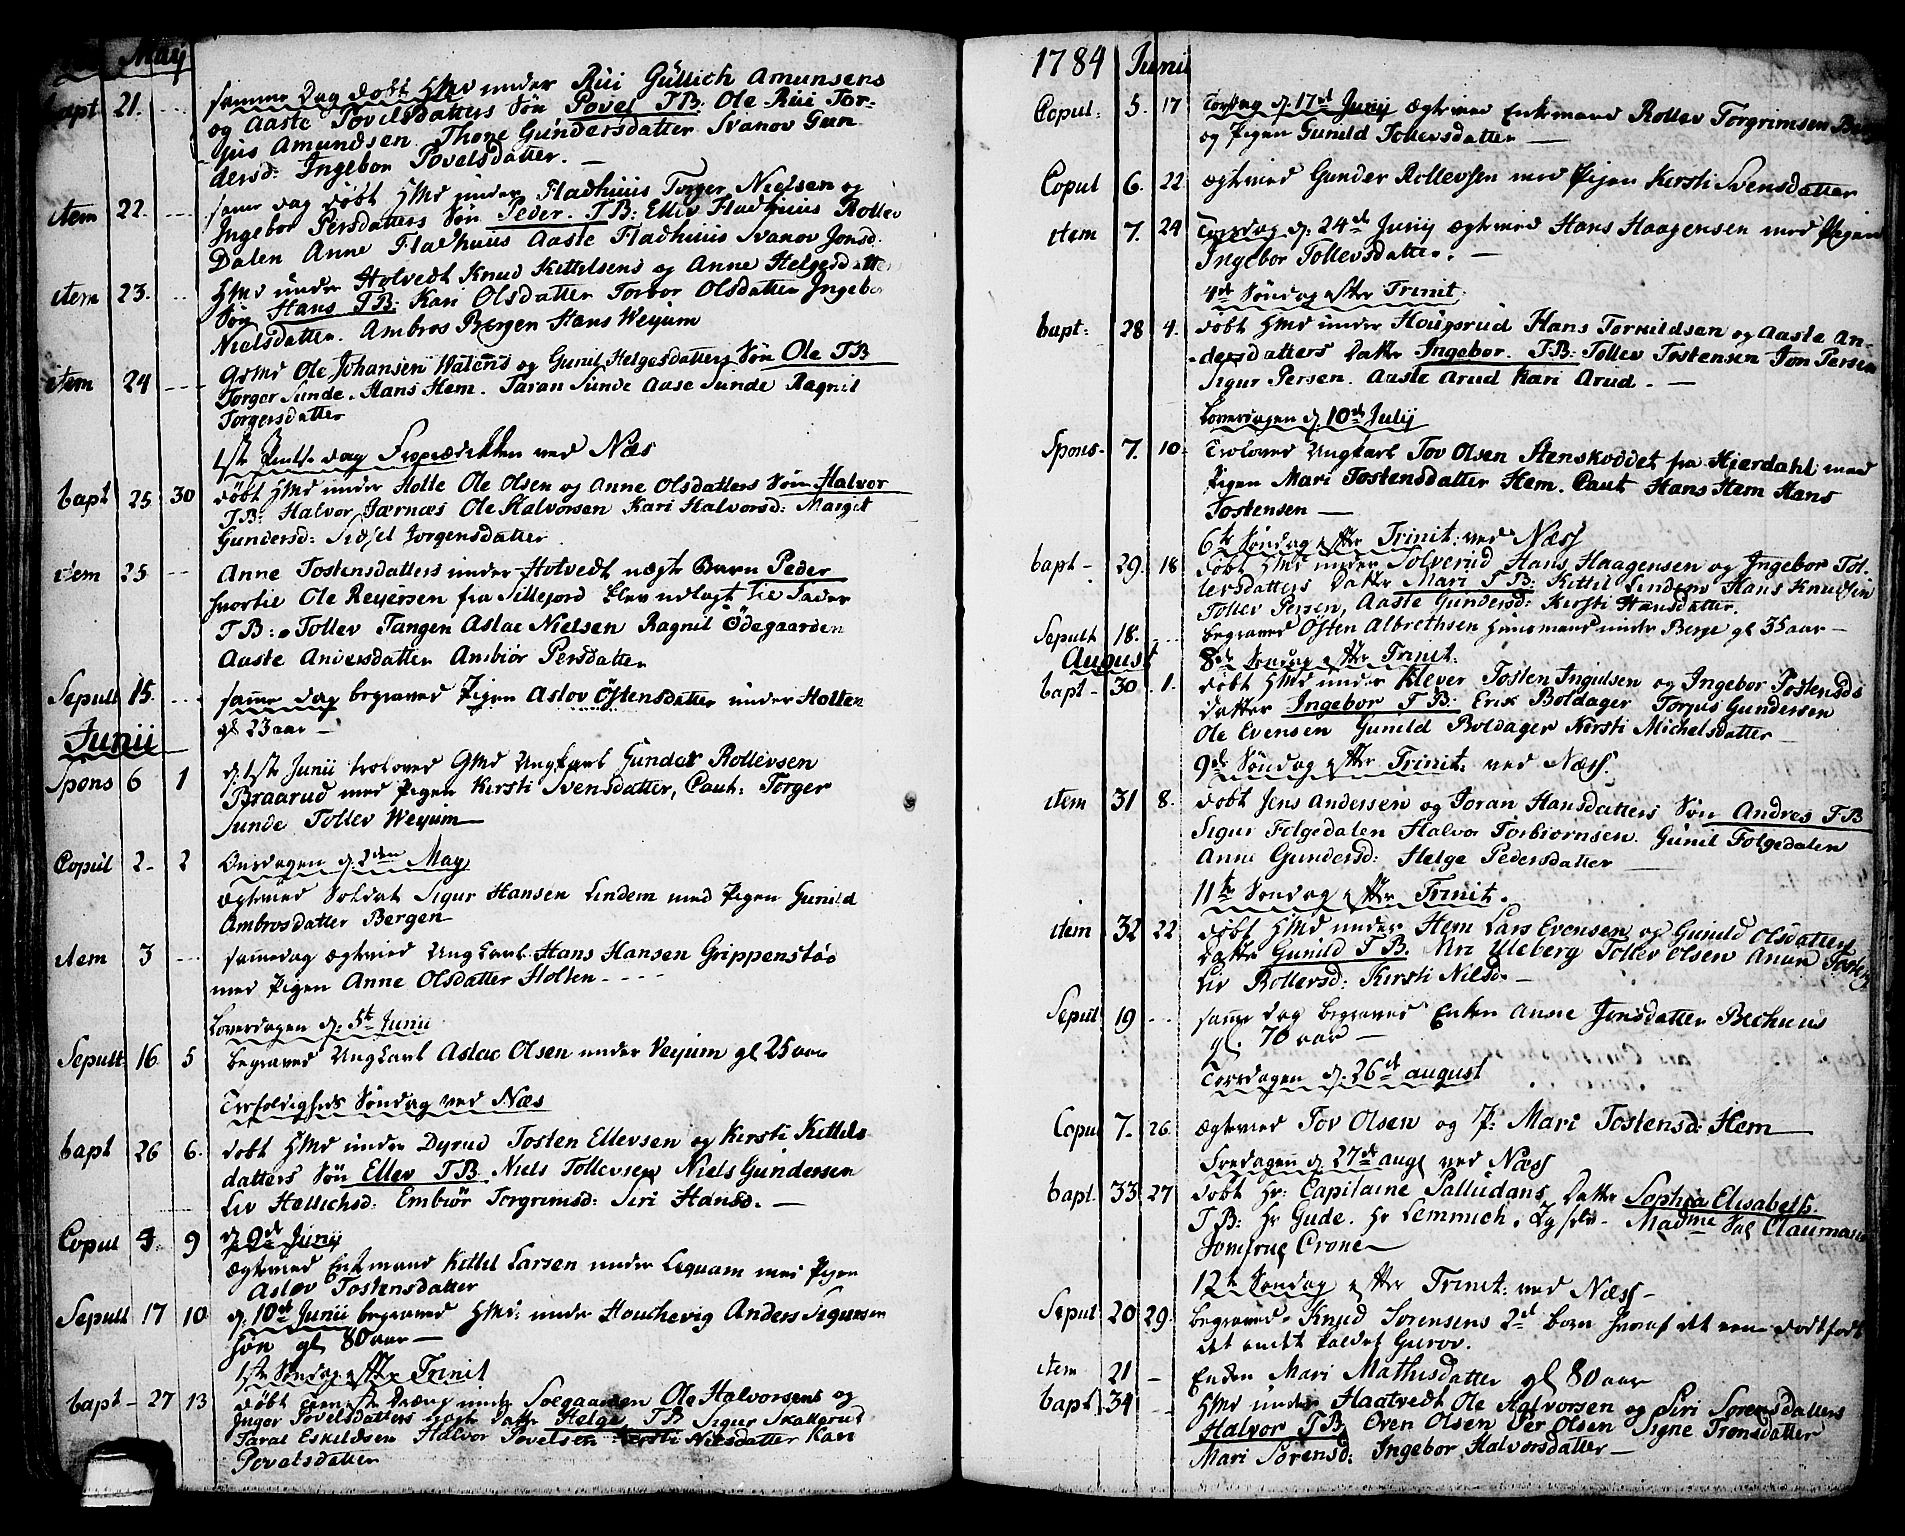 May
bapt 21. --- samme Dag døbt Hmd under Rüi Güllich Amunsens
og Aaste Povelsdatters Søn Povel TB. Ole Rüi Tor-
Amundsen. Thone Gündersdatter Svanov Gun
dersd: Ingebor Povelsdatter. —
item 22. --- samme dag døbt Hmd under Fladhuus Torger Nielsen og
Ingebor Persdatters Søn Peder. TB: Ellev Fladhuus Rollev
Dalen Anne Fladhuus Aaste Fladhuus Svanov Jonsd.
item 23. --- Hmd under Holvedt Knud Kittelsens og Anne Helgesdatters
Søn Hans TB: Kari Olsdatter Torbor Olsdatter Ingebor
Nielsdatter. Ambros Bergen Hans Weyum
item 24 --- Gmd Ole Johansen og Gunil Helgesdatters Søn Ole TB
Torger Sunde. Hans Hem. Taran Sunde Aase Sunde Ragnil
Torgersdatter
1ste Dag ved Næs
bapt 25 30 døbt Hmd under Holte Ole Olsen og Anne Olsdatters Søn Halvor
TB: Halvor Jærnæs Ole Halvorsen Kari Halvorsd: Margit
Gundersd: Sidsel Jorgensdatter.
item 25 --- Anne Tostensdatters under Hotvedt uægte Barn Peder
hvortil Ole Reyersen fra Sillejord blev udlagt til Fader
TB: Tollev Tangen Aslac Nielsen Ragnil Ødegaarden
Aaste Andersdatter Ambiør Persdatter
Sepult 15. --- samme dag begraved Pigen Aslov Østensdatter under Holten
gl 23 aar —
Junii
Spons 6 1 d: 1ste Junii troloved Gmd Ungkarl Gunder Rollevsen
Braarud med Pigen Kersti Svensdatter, Caut: Torger
Sunde Tollev Weyum —
Copul 2- 2 Onsdagen d. 2den May
ægtevied Soldat Sigur Hansen Lindem med Pigen Gunild
Ambrosdatter Bergen —
item 3 --- sammedag ægteviet Ungkarl Hans Hansen Grippenstøe
med Pigen Anne Olsdatter Holten - - - -
Løverdagen d: 5te Junii
Sepult 16. 5 begraved Ungkarl Aslac Olsen under Veyum gl 25 aar
Trefoldigheds Søndag ved Næs
bapt 26 6. døbt Hmd under Dyrud Tosten Ellevsen og Kersti Kittels
datters Søn Ellev TB. Niels Tollevsen Niels Gundersen
Liv Hellichsd: Embiør Torgrimsd: Siri Hansd. —
Copul 4. 9 d. 9de Junii
ægteviet Enkemand Kittel Larsen under Lequam med Pigen
Aslov Tostensdatter
Sepult 17 10 d: 10de Junii begraved Hmd: under Houchevig Anders Sigursen
gl 80 aar —
1ste Søndag efter Trinit
bapt - 27 13 døbt under Solgaarden Ole Halvorsens og
Inger Povelsdatters Datter Helge. TB Sigur Skattebut
Taral Eskildsen Halvor Povelsen Kersti Nielsdatter Kari
Povelsdatter
1784 Junii
Copul: 5. 17 Torsdag d. 17de Junij ægteviet Enkemand Rollev Torgrimsen
og Pigen Gunild Tollevsdatter —
Copul 6. 22 ægteviet Gunder Rollevsen med Pigen Kersti Svensdatter
item 7. 24 Torsdag d: 24de Junij ægteviet Hans Haagensen med Pigen
Ingebor Tollevsdatter. —
4de Søndag efter Trinit.
bapt: 28 4. døbt Hmd under Hougsrud Hans Torkildsen og Aaste An-
dersdatters Datter Ingebor. TB: Tollev Tostensen Jon Persen
Sigur Persen. Aaste Arud Kari Arud. —
Løverdagen d. 10de Julij
Spons- 7. 10. Trolovet Ungkarl Tov Olsen Stenskoddet fra Hierdahl med
Pigen Mari Tostensdatter Hem. Caut Hans Hem Hans
Tostensen —
6te Søndag efter Trinit: ved Næss
bapt - 29. 18 døbt Hmd under Solverud Hans Haagensen og Ingebor Tol-
levsdatters Datter Mari TB: Kittil Lindem Hans Knudsen
Tollev Persen, Aaste Gundersd: Kersti Hansdatter.
Sepult 18. --- begraved Østen Albrethsen Huusmand under Berge gl 35 aar —
August 8de Søndag efter Trinit:
bapt - 30 1. døbt Hmd under Klever Tosten Ingulsen og Ingebor Tostensds
datter Ingebor TB: Erik Boldager Torgus Gundersen
Ole Evensen Gunild Boldager Kersti Michelsdatter —
9de Søndag efter Trinit: ved Næss.
item 31 8. døbt Jens Andersen og Joran Hansdatters Søn Andres TB
Sigur Folgedalen Halvor Torbiornsen. Gunil Folgedalen
Anne Gundersd: Helge Pedersdatter —
11te Søndag efter Trinit.
item 32 22 døbt Hmd under Hem Lars Evensen og Gunild Olsdatters
Datter Gunild TB. Mri Uleberg Tollev Olsen Anun
Liv Rollevsd: Kersti Nilsd. —
Sepul 19 --- samme dag begraved Enken Anne Jonsdatter Bechuus
gl. 70 aar —
Torsdagen d. 26de august
Copul 7. 26 ægteviet Tov Olsen og P: Mari Tostensd: Hem —
Fredagen d 27de aug ved Næss
bapt. 33. 27 døbt Hr: Capitaine Palludans Datter Sophia Elisabeth.
TB: Hr Gude. Hr Lemmich. Madme Sal. Claumann
Jomfrue Crone —
12te Søndag efter Trinit: ved Næss —
Sepul 20 29. begraved Knud Sorensens 2de børn hvoraf det eene dødfødt
det andet kaldet Gurov.
item 21 - Enken Mari Mathisdatter gl 80 aar
bapt 34 - Hmd under Haatvedt Ole Halvorsen og Siri Sorensdatters
Halvor TB. Even Olsen Per Olsen Signe Tronsdatter
Mari Sorensd: Ingebor Halvorsdatter —